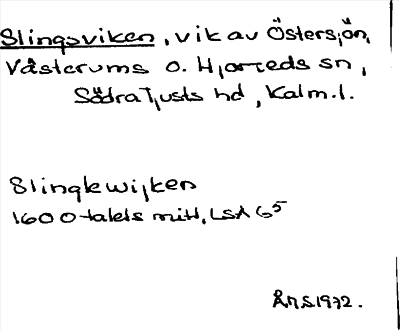 Slingsviken, vik av Östersjön,
Västerums o. Hjorteds sn,
Södra Tjusts hd, Kalm.l.
Slingkewijken
1600-talets mitt, LSA G5
ÅNS1972.